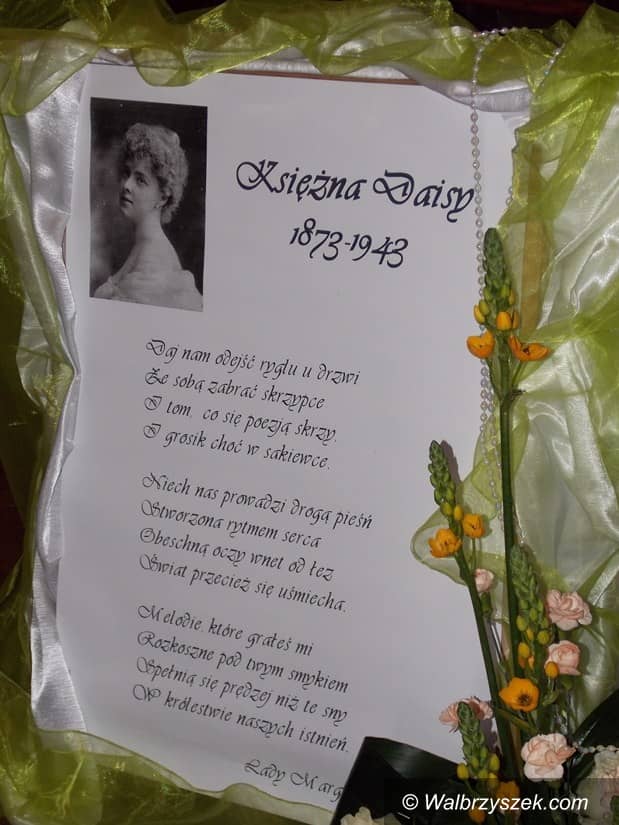 Księżna Daisy
1873-1943
Daj nam odejść ryglu u drzwi
Ze sobą zabrać skrzypce
I tom, co się poezją skrzy,
I grosik choć w sakiewce.
Niech nas prowadzi drogą pieśń
Stworzona rytmem serca
Obeschną oczy wnet od łez
Świat przecież się uśmiecha.
Melodie, które grałeś mi
Rozkoszne pod twym smykiem
Spełnią się prędzej niż te sny
W królestwie naszych istnień.
Lady Marg
© Walbrzyszek.com